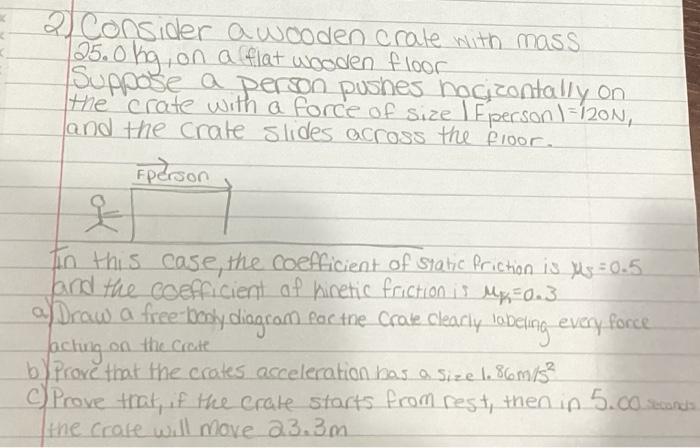 2) Consider a wooden crate with mass
25.0 kg, on a flat wooden floor
Suppose a person pushes horizontally on
the crate with a force of size |Fperson|=120N,
and the crate slides across the floor.
Fperson
In this case, the coefficient of static friction is μs=0.5
and the coefficient of kinetic friction is μk=0.3
a) Draw a free-body diagram for the crate clearly labeling every force
acting on the crate
b) Prove that the crates acceleration has a size 1.86m/s²
c) Prove that, if the crate starts from rest, then in 5.00 seconds
the crate will move 23.3m